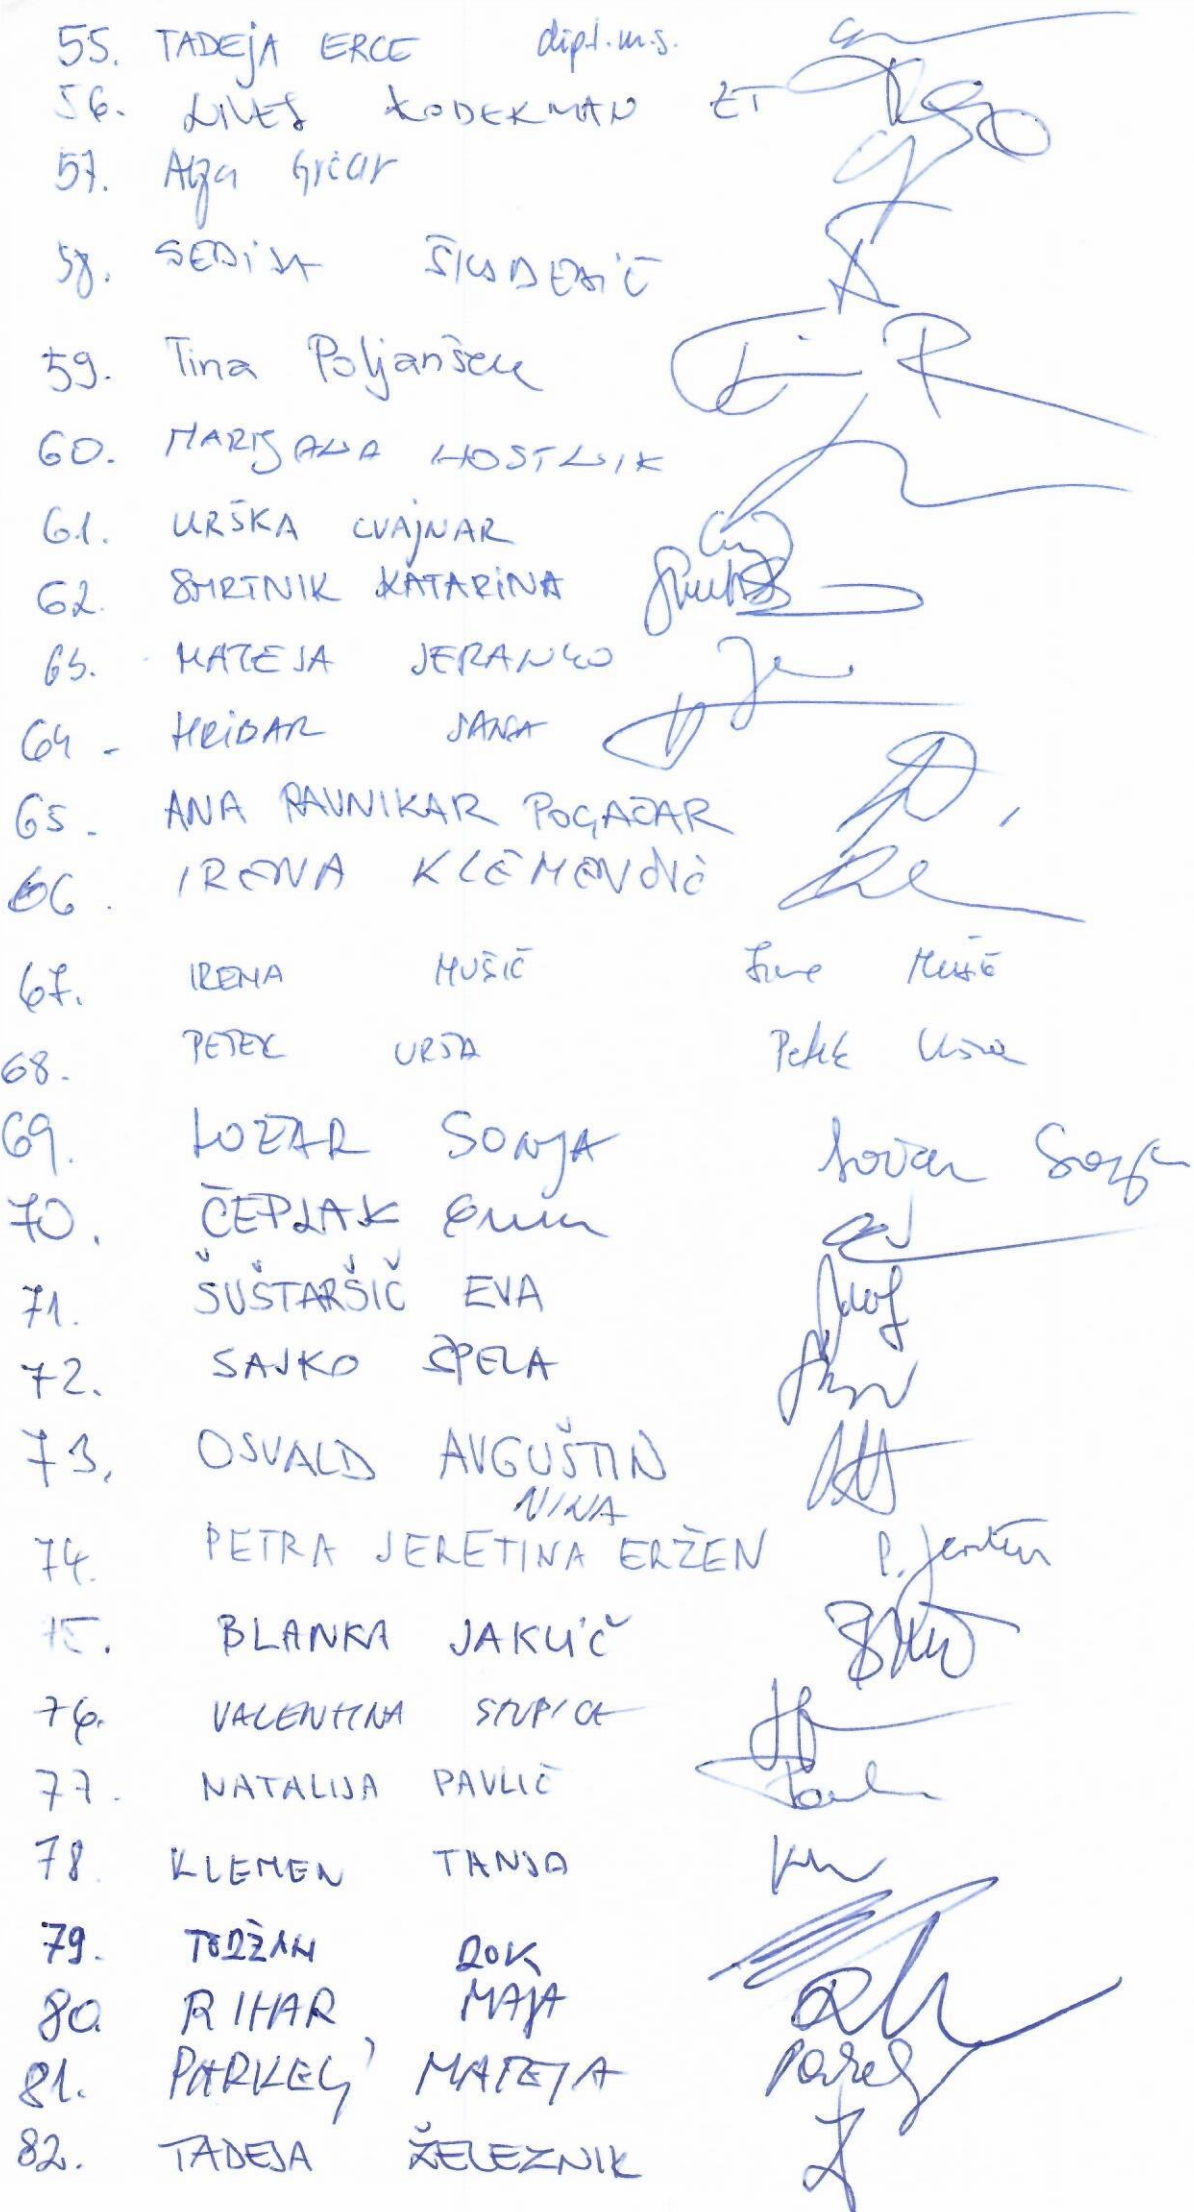 55. TADEJA ERCE dipl.m.s.
56. KODEKMAN ŽT
57. Ajza Grčar
58. SEDIJA
59. Tina Poljanšek
60. MARIJANA HOSTNIK
61. URŠKA CVAJNAR
62. SMRTNIK KATARINA
63. MATEJA JERANKO
64 - HRIBAR JANA
65. ANA RAVNIKAR POGAČAR
66. IRENA KLEMENČIČ
67. IRENA MUŠIČ Irena Mušič
68. PETEK URŠA Petek Urša
69. LOŽAR SONJA Ložar Sonja
70. ČEPLAK
71. ŠUŠTARŠIČ EVA
72. SAJKO ŠPELA
73. OSVALD AVGUŠTIN
NINA
74. PETRA JERETINA ERŽEN P. Jeretin
75. BLANKA JAKLIČ
76. VALENTINA STUPICA
77. NATALIJA PAVLIČ
78 KLEMEN TANJA
79. TORŽAN ROK
80. RIHAR MAJA
81. PARKELJ MATEJA
82. TADEJA ŽELEZNIK